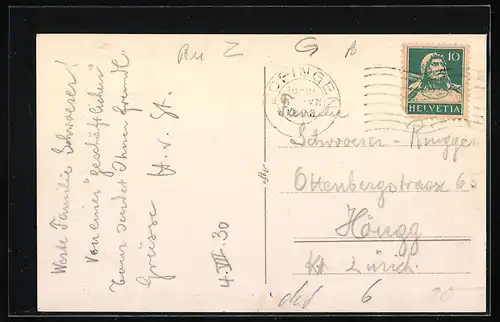 Werte Familie Schwoeser!
Von einer "geschäftlichen"
Tour sendet Ihnen freundl.
Grüsse H. v. St.
4. VII. 30
ZOFINGEN
10
HELVETIA
Familie
Schwoeser-Rüegger
Ottenbergstrasse 65
Höngg
Kt. Zürich.
6